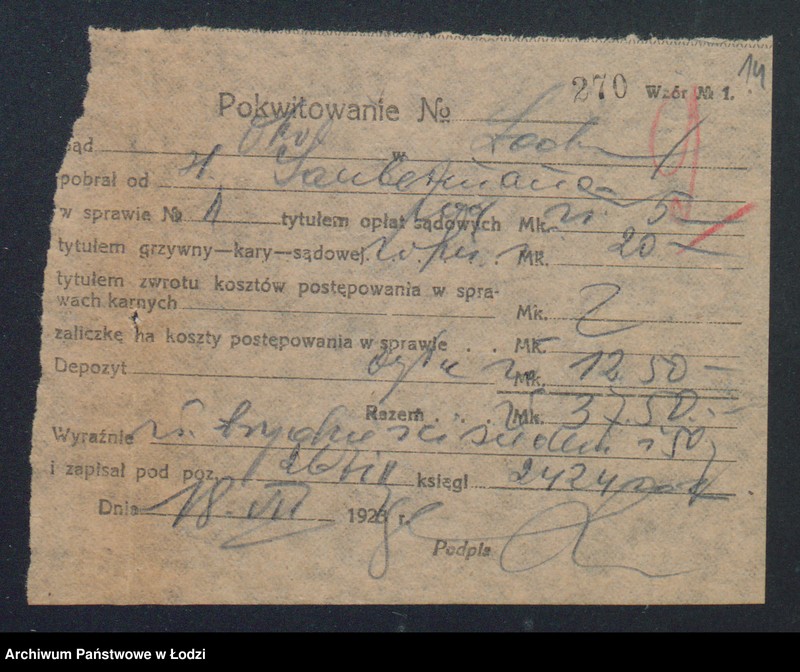 14
270 Wzór № 1.
Pokwitowanie №
Sąd Okr. w Łodzi
pobrał od H.
w sprawie № 1 tytułem opłat sądowych Mk. zł. 5 —
tytułem grzywny—kary—sądowej . . . Mk. 20 —
tytułem zwrotu kosztów postępowania w spra-
wach karnych Mk.
zaliczkę na koszty postępowania w sprawie . . Mk.
Depozyt Mk. 12.50 —
Razem . . . Mk. 37.50. —
Wyraźnie zł. trzydzieści siedem i 50
i zapisał pod poz. księgi 2424
Dnia 18. VII 1928 r.
Podpis
Archiwum Państwowe w Łodzi